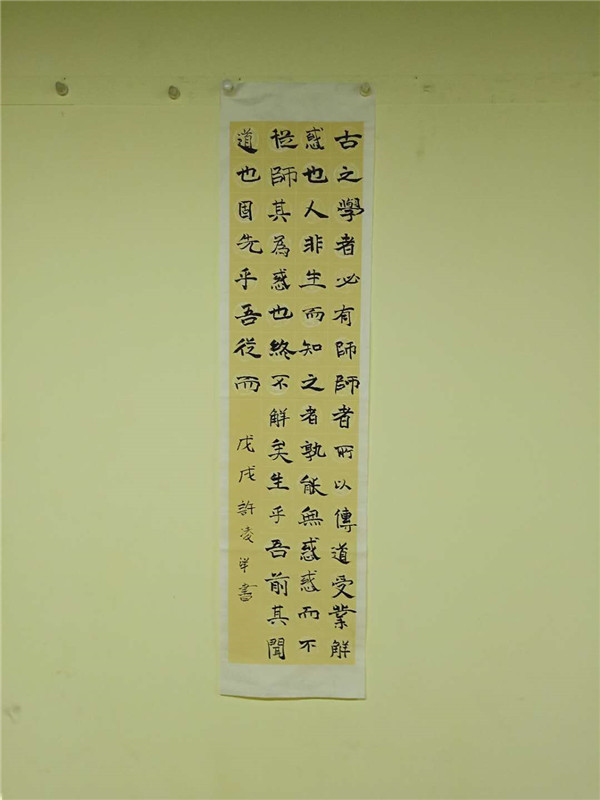 古之學者必有師師者所以傳道受業解
惑也人非生而知之者孰能無惑惑而不
從師其為惑也終不解矣生乎吾前其聞
道也固先乎吾從而
戊戌許凌書